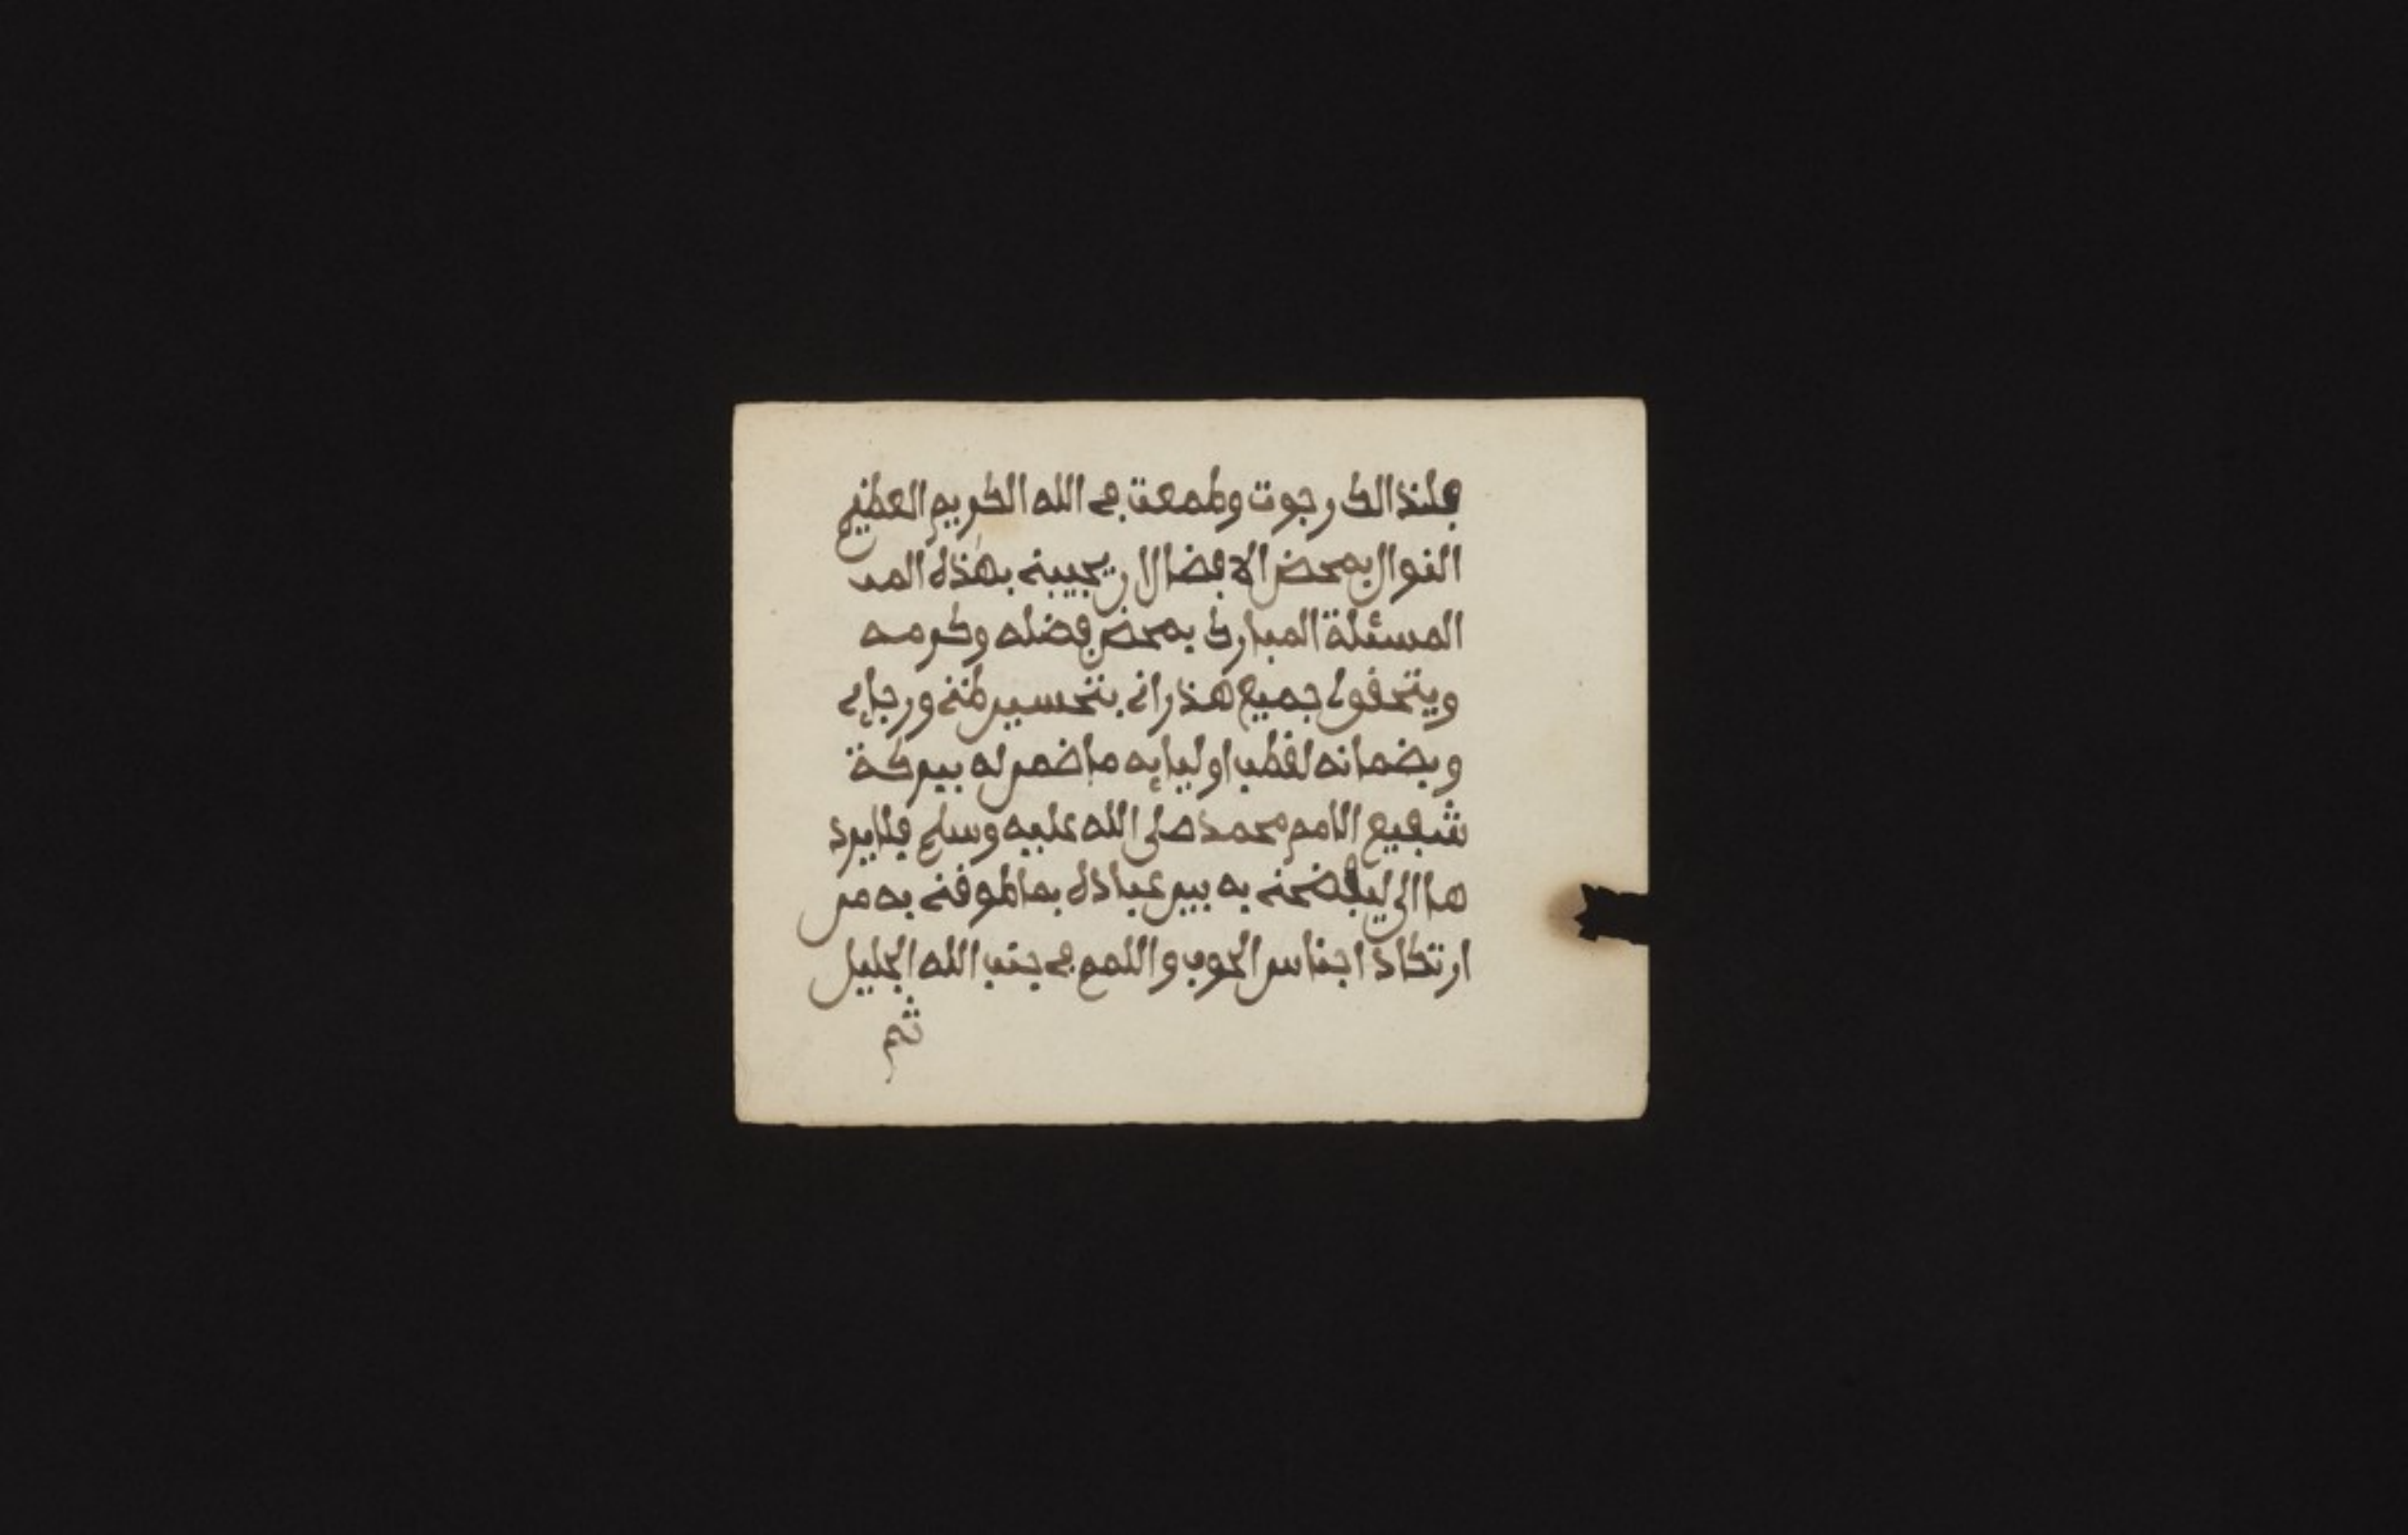 فلذالك رجوت وطمعت في الله الكريم العظيم
النوال بمحض الافضال ان يجيبنه بهذه المد
المسئلة المبارك بمحض فضله وكرمه
ويتحقق لي جميع بتحسين ظنه ورجايي
وبضمانه لقطب اوليايه ما ضمن له ببركة
شفيع الامم محمد صلى الله عليه وسلم فلا يرد
ها الي ليفضحنه به بين عباده بما طوقنه به من
ارتكاد اجناس الحوب واللمم في جنب الله الجليل
ثم